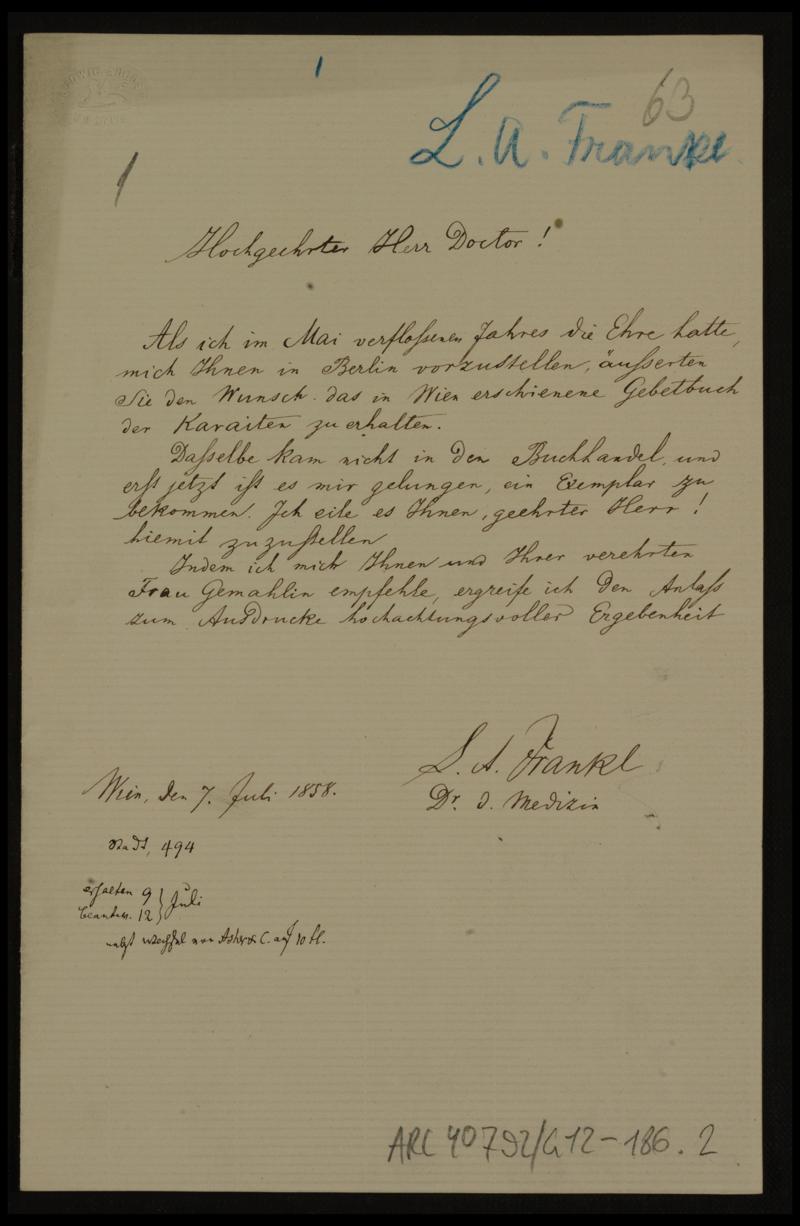 1
63
L. A. Frankl
1
Hochgeehrter Herr Doctor!
Als ich im Mai verfloßenen Jahres die Ehre hatte,
mich Ihnen in Berlin vorzustellen, äusserten
Sie den Wunsch das in Wien erschienene Gebetbuch
der Karaiten zu erhalten.
Daßelbe kam nicht in den Buchhandel, und
erst jetzt ist es mir gelungen, ein Exemplar zu
bekommen. Ich eile es Ihnen, geehrter Herr!
hiemit zuzustellen
Indem ich mich Ihnen und Ihrer verehrten
Frau Gemahlin empfehle, ergreife ich den Anlaß
zum Ausdrucke hochachtungsvoller Ergebenheit
L. A. Frankl
Wien, den 7. Juli 1858.
Dr. d. Medizin
Stadt, 494
erhalten 9 } Juli
beantw. 12
nebst Wechsel von Asher & C. auf 10 fl.
ARC 4° 792/G12-186.2